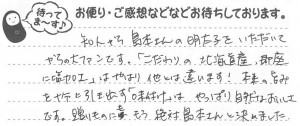 待ってま～す♪
お便り・ご感想などなどお待ちしております。
知人から島本さんの明太子をいただいて
からの大ファンです。「こだわりの北海道産、即座
に塩加工」はやはり他とは違います！本来の旨み
を十二に引き出す「味付け」は やっぱり自然なおいしさ
です。贈りものに妻も絶対島本さんと決めました